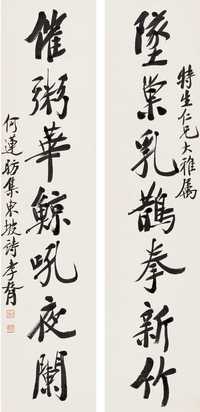 特生仁兄大雅屬
墜巢乳鵲拳新竹
催粥華鯨吼夜闌
何蓮舫集東坡詩 孝胥